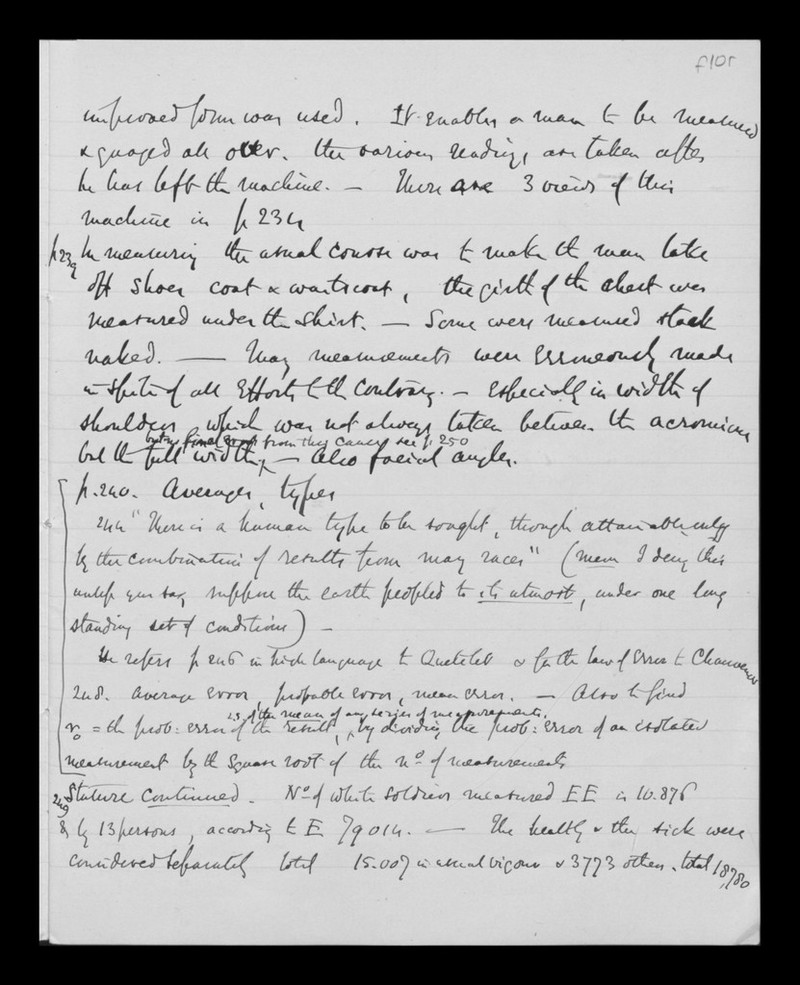 f10r
improved form was used. It enables a man to be measured
& guaged all over. The various readings are taken after
he has left the machine. — There are 3 views of this
machine in p 234
p239 In measuring the usual course was to make the man take
off shoes coat & waistcoat, the girth of the chest was
measured under the shirt. — Some were measured stark
naked. — Many measurements were erroneously made
in spite of all efforts to the contrary. — especially in width of
shoulders which was not always taken between the acromion
but the full width — also facial angles.
from this cause see p. 250
p. 240. Averages, types
244 "There is a human type to be sought, though attainable only
by the combination of results from many races" (mem I deny this
unless you say suppose the earth peopled to its utmost, under one long
standing set of conditions) —
He refers p 246 in high language to Quetelet & for the law of Error to Chauvenet
248. Average error, probable error, mean error. — Also to find
i.e. of the mean of any series of measurements.
r₀ = the prob: error of the result, by dividing the prob: error of an isolated
measurement by the square root of the nº of measurements
249 Stature continued. Nº of white soldiers measured EE is 10.876
& by 13 persons, according to E 7904. — The healthy & the sick were
considered separately total 15.007 in usual vigour & 3773 others. total 18,780